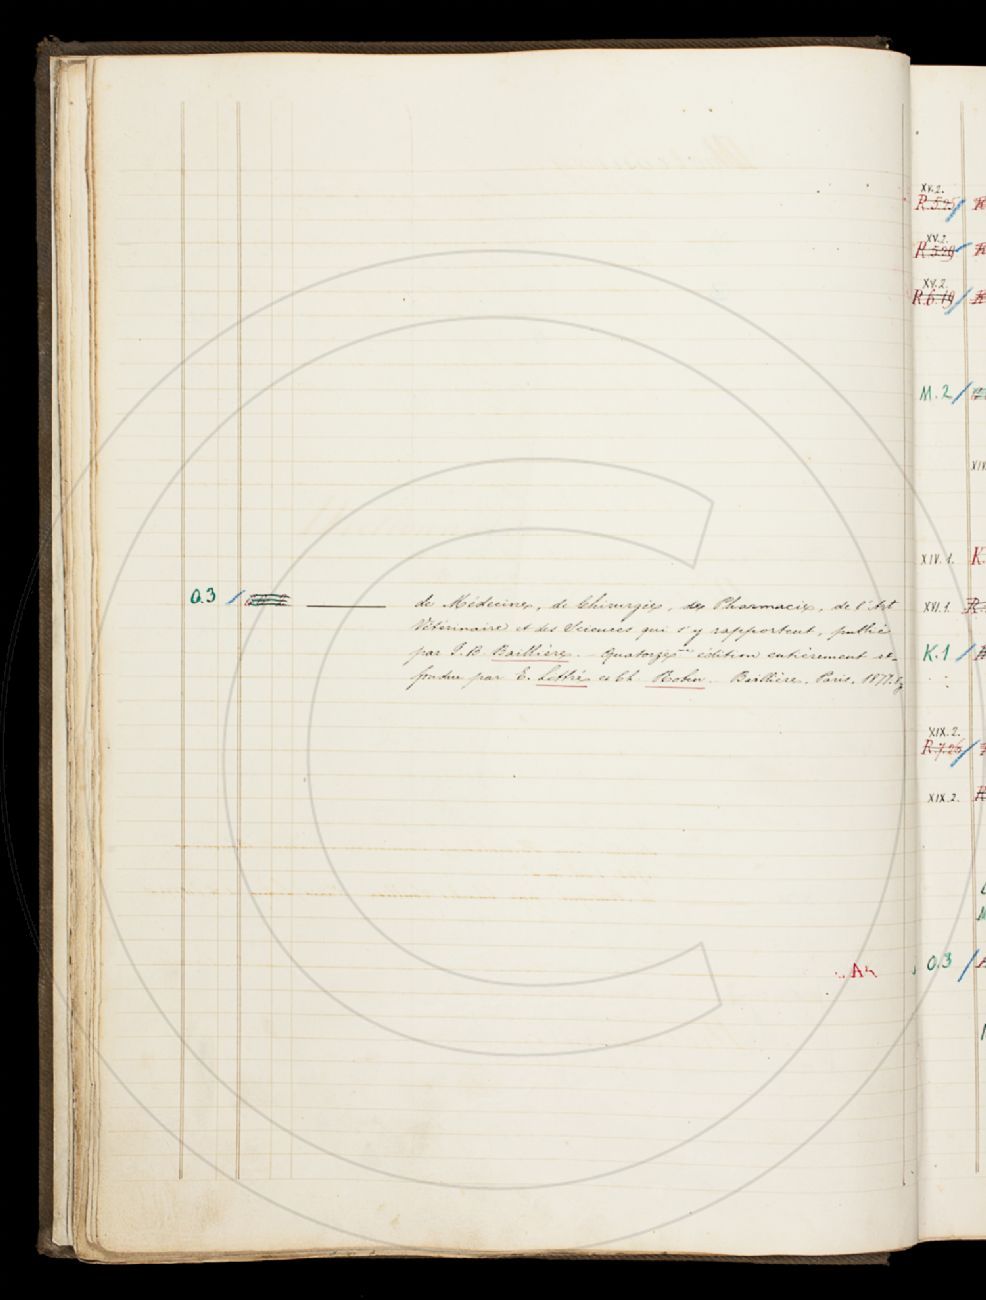 O.3 / ——— de Médecine, de Chirurgie, de Pharmacie, de l'Art
Vétérinaire et des Sciences qui s'y rapportent, publié
par J. B. Baillière. Quatorze édition entièrement re-
fondue par E. Littré et Ch. Robin. Baillière. Paris. 1877.
XV.2.
R.525 /
XV.2.
R.529
XV.2.
R.6.19 /
M.2 /
XIV
XIV.1. K.
XVI.1 R.
K.1 /
XIX.2.
R.7.26 /
XIX.2. R
O.3 /